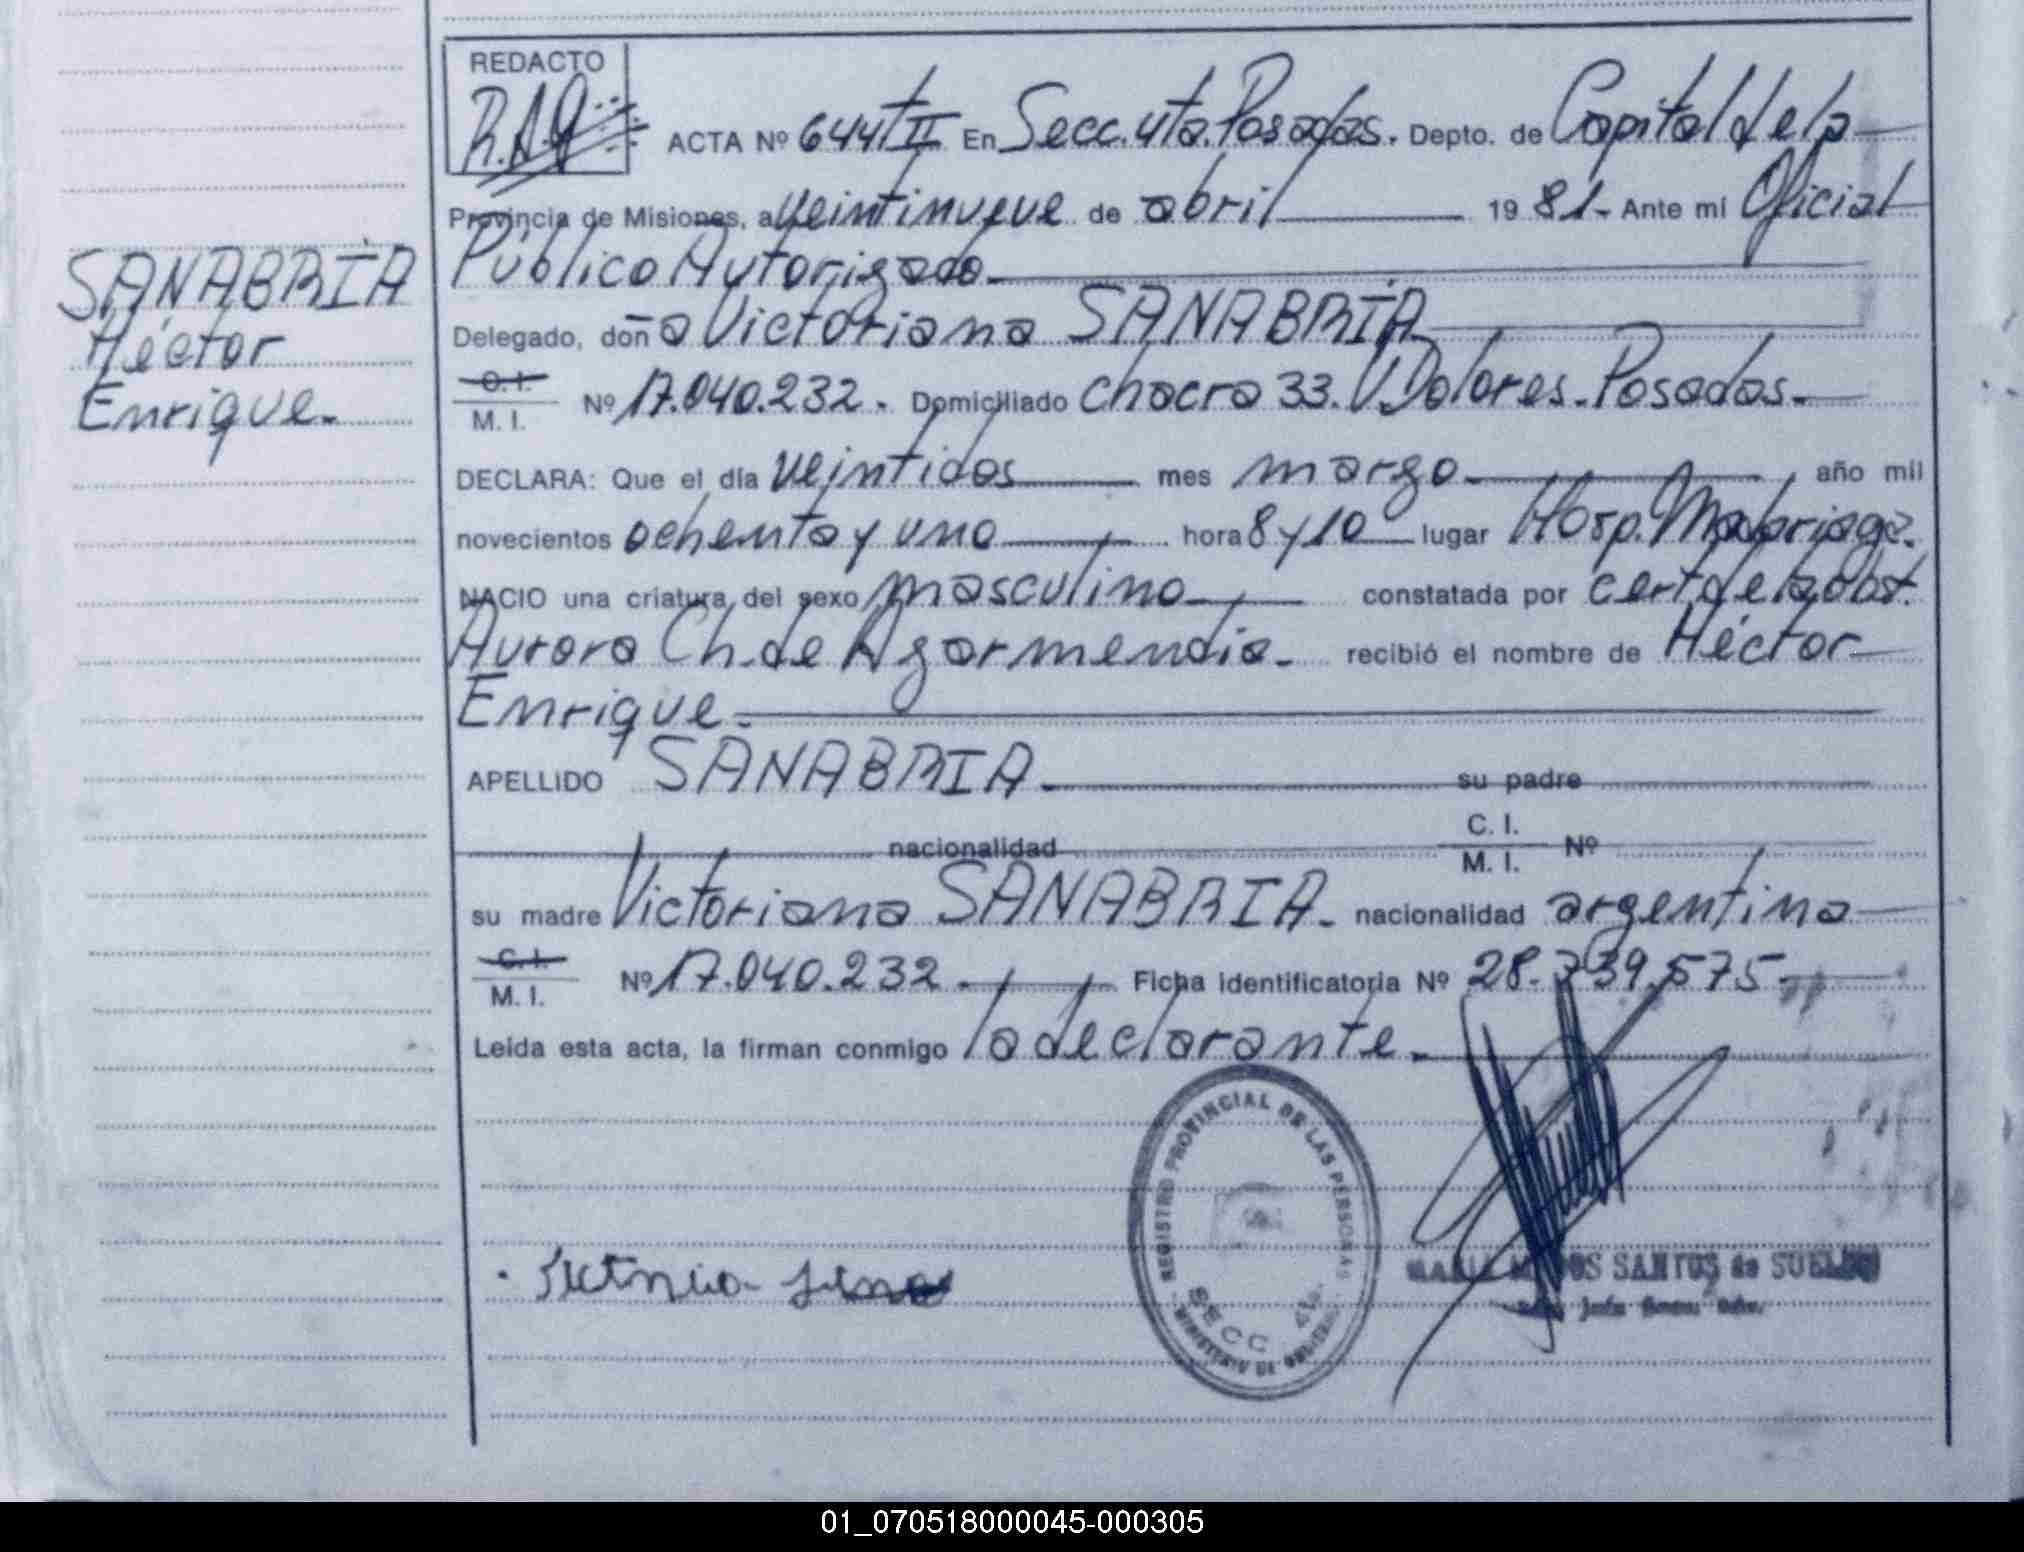 REDACTO
R.A.G
ACTA Nº 644 TII En Secc. 4ta. Posadas. Depto. de Capital de la
Provincia de Misiones, a veintinueve de abril 1981.- Ante mí Oficial
Público Autorizado.
SANABRÍA
Héctor
Enrique.-
Delegado, doña Victoriana SANABRÍA
C. I.
M. I. Nº 17.040.232. Domiciliado chacra 33. V. Dolores. Posadas.-
DECLARA: Que el día veintidos mes marzo año mil
novecientos ochenta y uno hora 8 y 10 lugar Hosp. Madariaga.
NACIO una criatura del sexo masculino constatada por cert. de la Obst.
Aurora Ch. de Azarmendia. recibió el nombre de Héctor
Enrique.
APELLIDO SANABRIA. su padre
nacionalidad C. I. M. I. Nº
su madre Victoriana SANABRIA. nacionalidad argentina
C. I.
M. I. Nº 17.040.232. Ficha identificatoria Nº 28.739.575.-
Leída esta acta, la firman conmigo la declarante.
REGISTRO PROVINCIAL DE LAS PERSONAS
SECC 4ta.
MINISTERIO DE
SANTOS de SUELDO
01_070518000045-000305